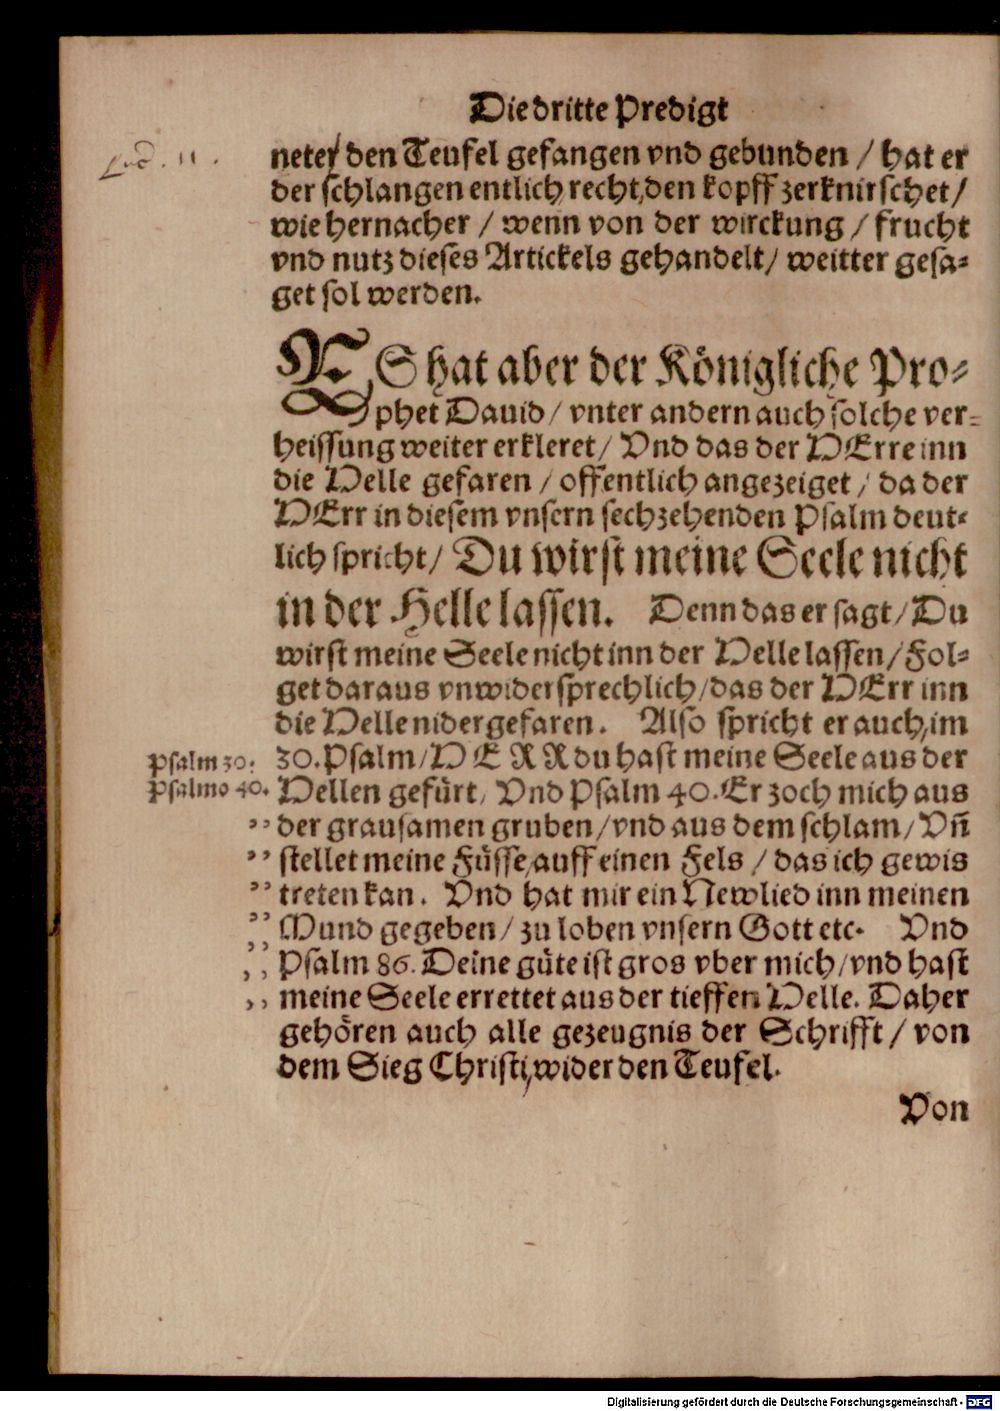 Die dritte Predigt
Luc. 11.
netet den Teufel gefangen vnd gebunden / hat er
der schlangen entlich recht, den kopff zerknirschet /
wie hernacher / wenn von der wirckung / frucht
vnd nutz dieses Artickels gehandelt / weitter gesa-
get sol werden.
ES hat aber der Königliche Pro-
phet Dauid / vnter andern auch solche ver-
heissung weiter erkleret / Vnd das der HErre inn
die Helle gefaren / offentlich angezeiget / da der
HErr in diesem vnsern sechzehenden Psalm deut-
lich spricht / Du wirst meine Seele nicht
in der Helle lassen. Denn das er sagt / Du
wirst meine Seele nicht inn der Helle lassen / Fol-
get daraus vnwidersprechlich / das der HErr inn
die Helle nidergefaren. Also spricht er auch, im
Psalm 30. 30. Psalm / HERR du hast meine Seele aus der
Psalmo 40. Hellen gefürt / Vnd Psalm 40. Er zoch mich aus
" der grausamen gruben / vnd aus dem schlam / Vñ
" stellet meine Füsse, auff einen Fels / das ich gewis
" treten kan. Vnd hat mir ein New lied inn meinen
" Mund gegeben / zu loben vnsern Gott etc. Vnd
" Psalm 86. Deine güte ist gros vber mich / vnd hast
" meine Seele errettet aus der tieffen Helle. Daher
gehören auch alle gezeugnis der Schrifft / von
dem Sieg Christi, wider den Teufel.
Von
Digitalisierung gefördert durch die Deutsche Forschungsgemeinschaft - DFG